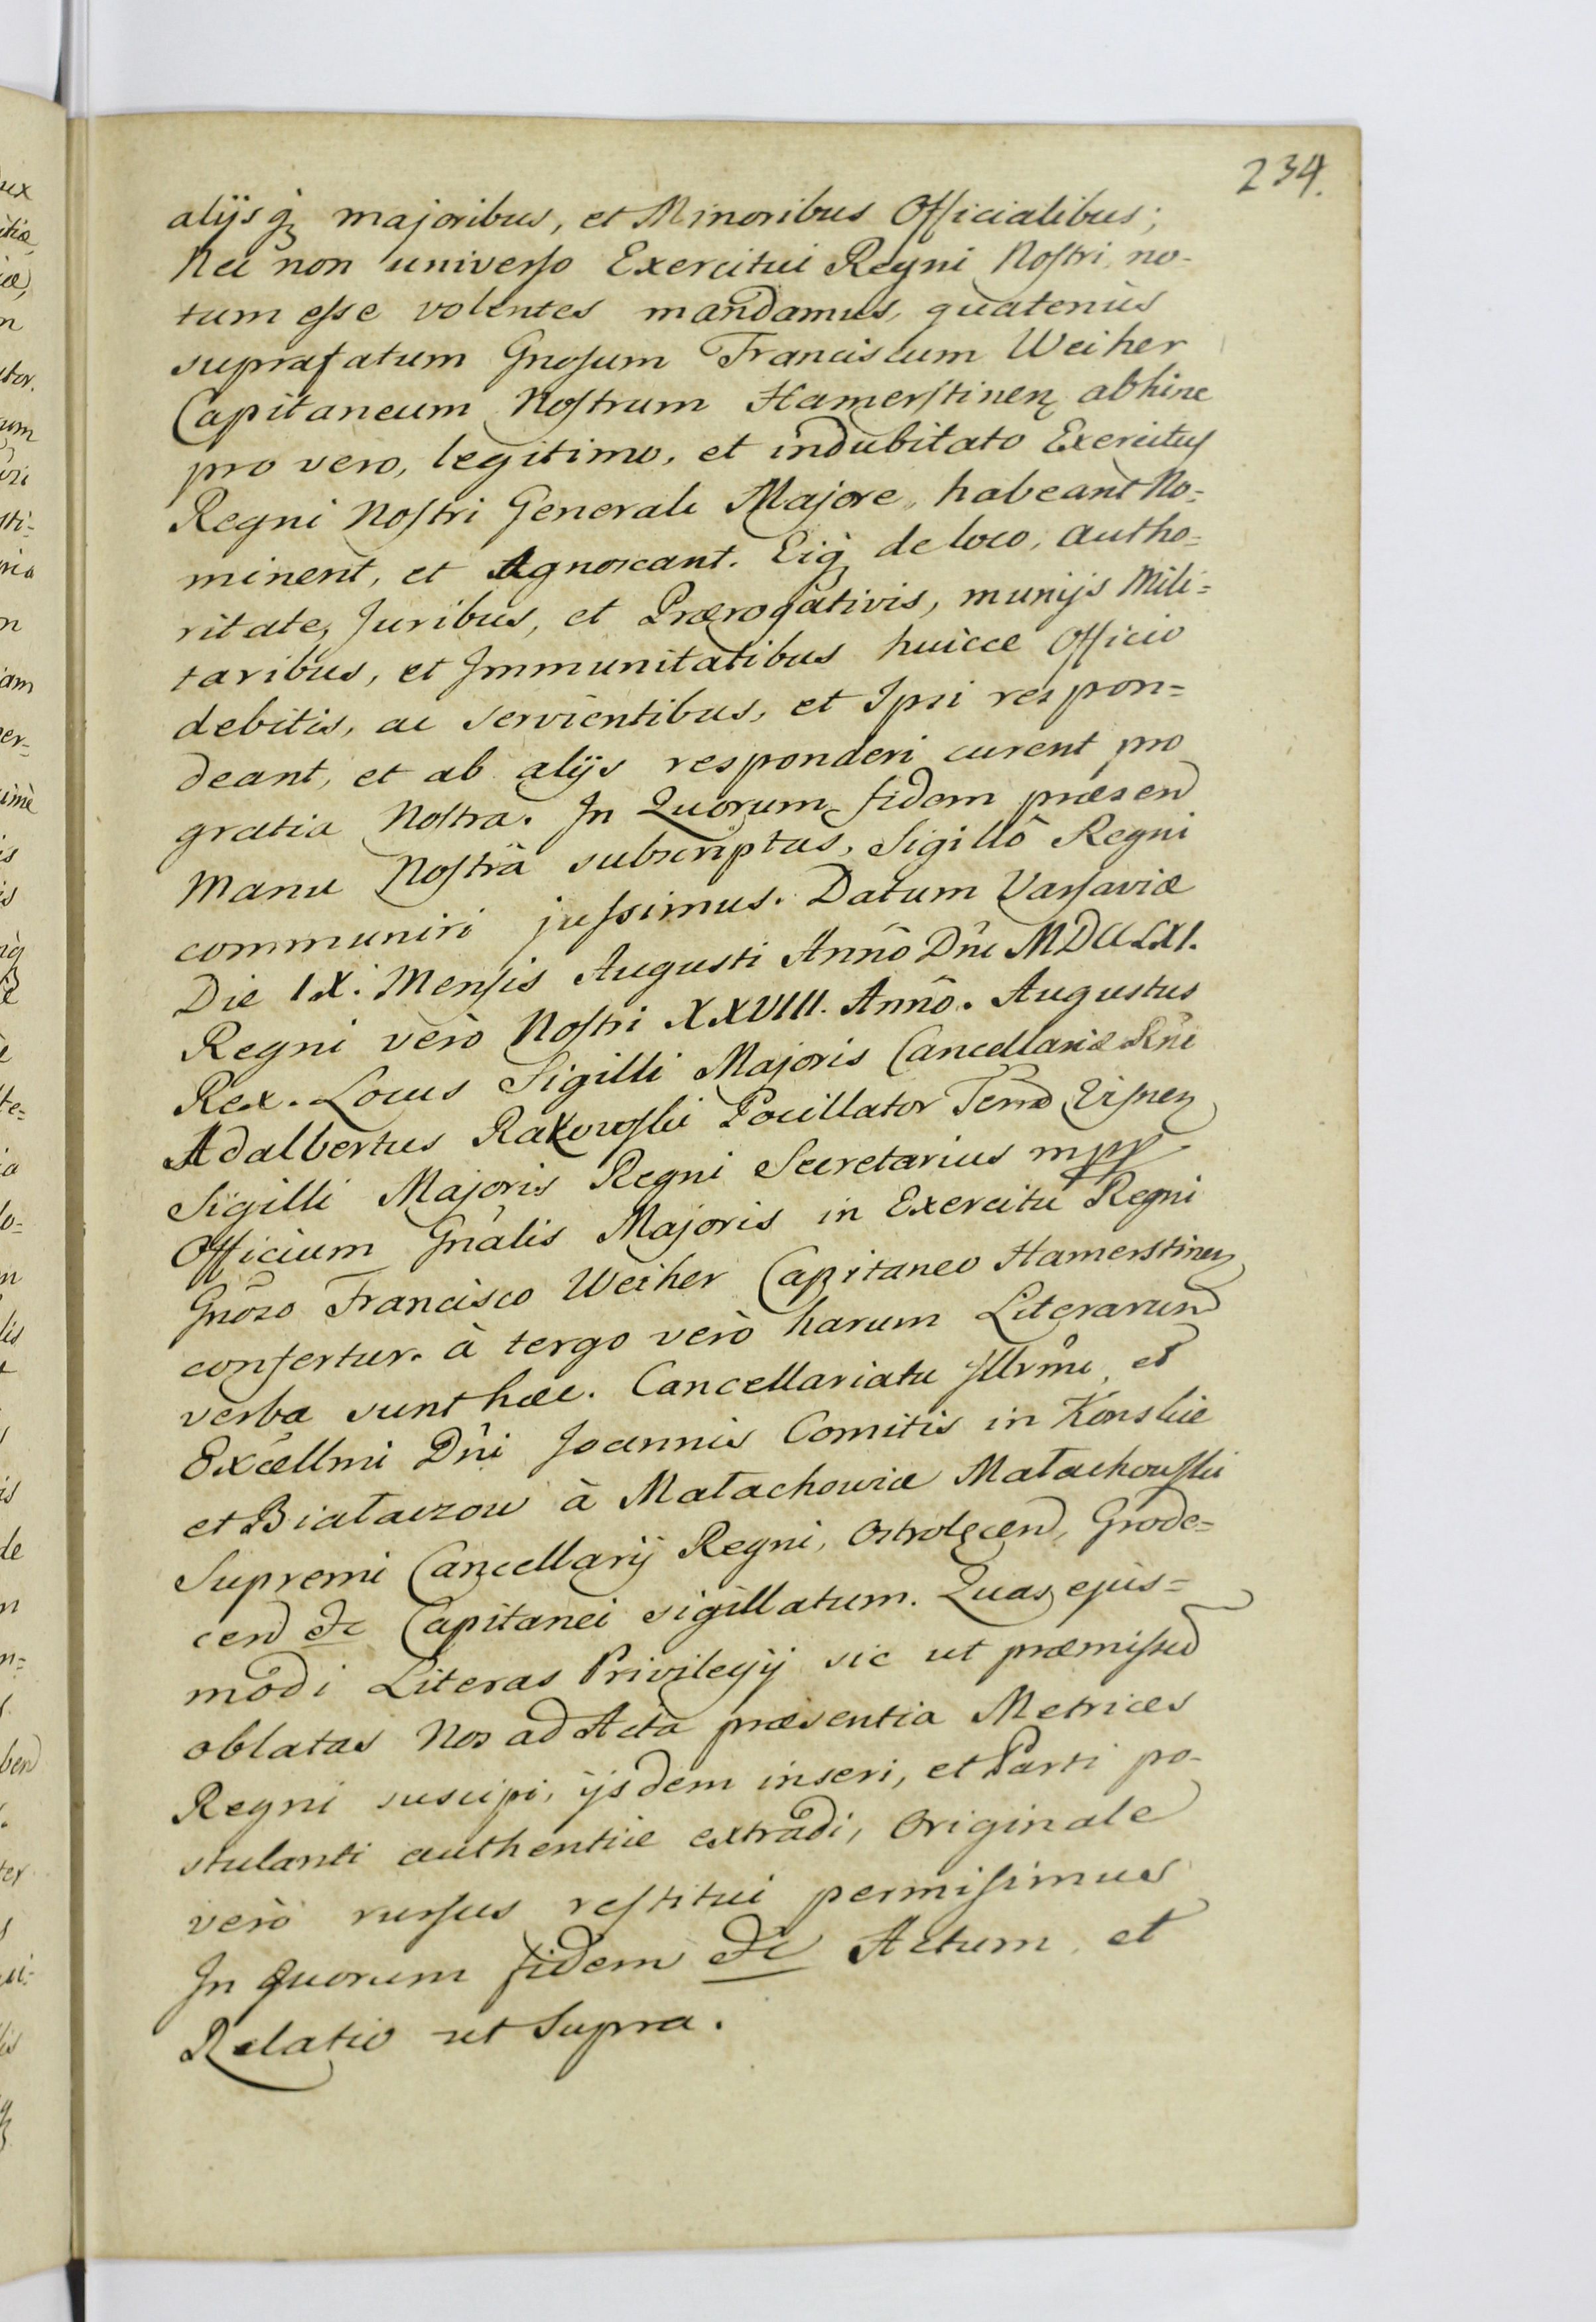 234.
alijsq; majoribus, et Minoribus Officialibus;
Nec non universo Exercitui Regni Nostri no-
tum esse volentes mandamus, quatenùs
suprafatum Gnosum Franciscum Weiher
Capitaneum Nostrum Hamerstinen abhinc
pro vero, legitimo, et indubitato Exercitus
Regni Nostri Generali Majore, habeant No=
minent, et Agnoscant. Eiq; de loco, autho=
ritate, Juribus, et Prærogativis, munijs Mili=
taribus, et Immunitatibus huicce Officio
debitis, ac servientibus, et Ipsi respon=
deant, et ab alijs responderi curent pro
gratia Nostra. In Quorum fidem præsen
Manu Nostrâ subscriptas, Sigillô Regni
communiri jussimus. Datum Varsaviæ
Die IX. Mensis Augusti Annô Dni MDCCLXI.
Regni verò Nostri XXVIII. Annô. Augustus
Rex. Locus Sigilli Majoris Cancellariæ
Adalbertus Rakowski Pocillator Terræ
Sigilli Majoris Regni Secretarius mpp
Officium Gnalis Majoris in Exercitu Regni
Gnoso Francisco Weiher Capitaneo Hamerstinen
confertur. à tergo verò harum Literarum
verba sunt hæc. Cancellariatu Illrmi, et
Excellmi Dni Joannis Comitis in Konskie
et Białaczow à Małachowice Małachowski
Supremi Cancellarij Regni, Ostrołęcen, Grode=
cen &c Capitanei sigillatum. Quas ejus=
modi Literas Privilegij sic ut præmissum
oblatas Nos ad Acta præsentia Metrices
Regni suscipi, ijsdem inseri, et Parti po-
stulanti authentice extradi, Originale
verò rursus restitui permisimus
In quorum fidem &c Actum, et
Relatio ut supra.